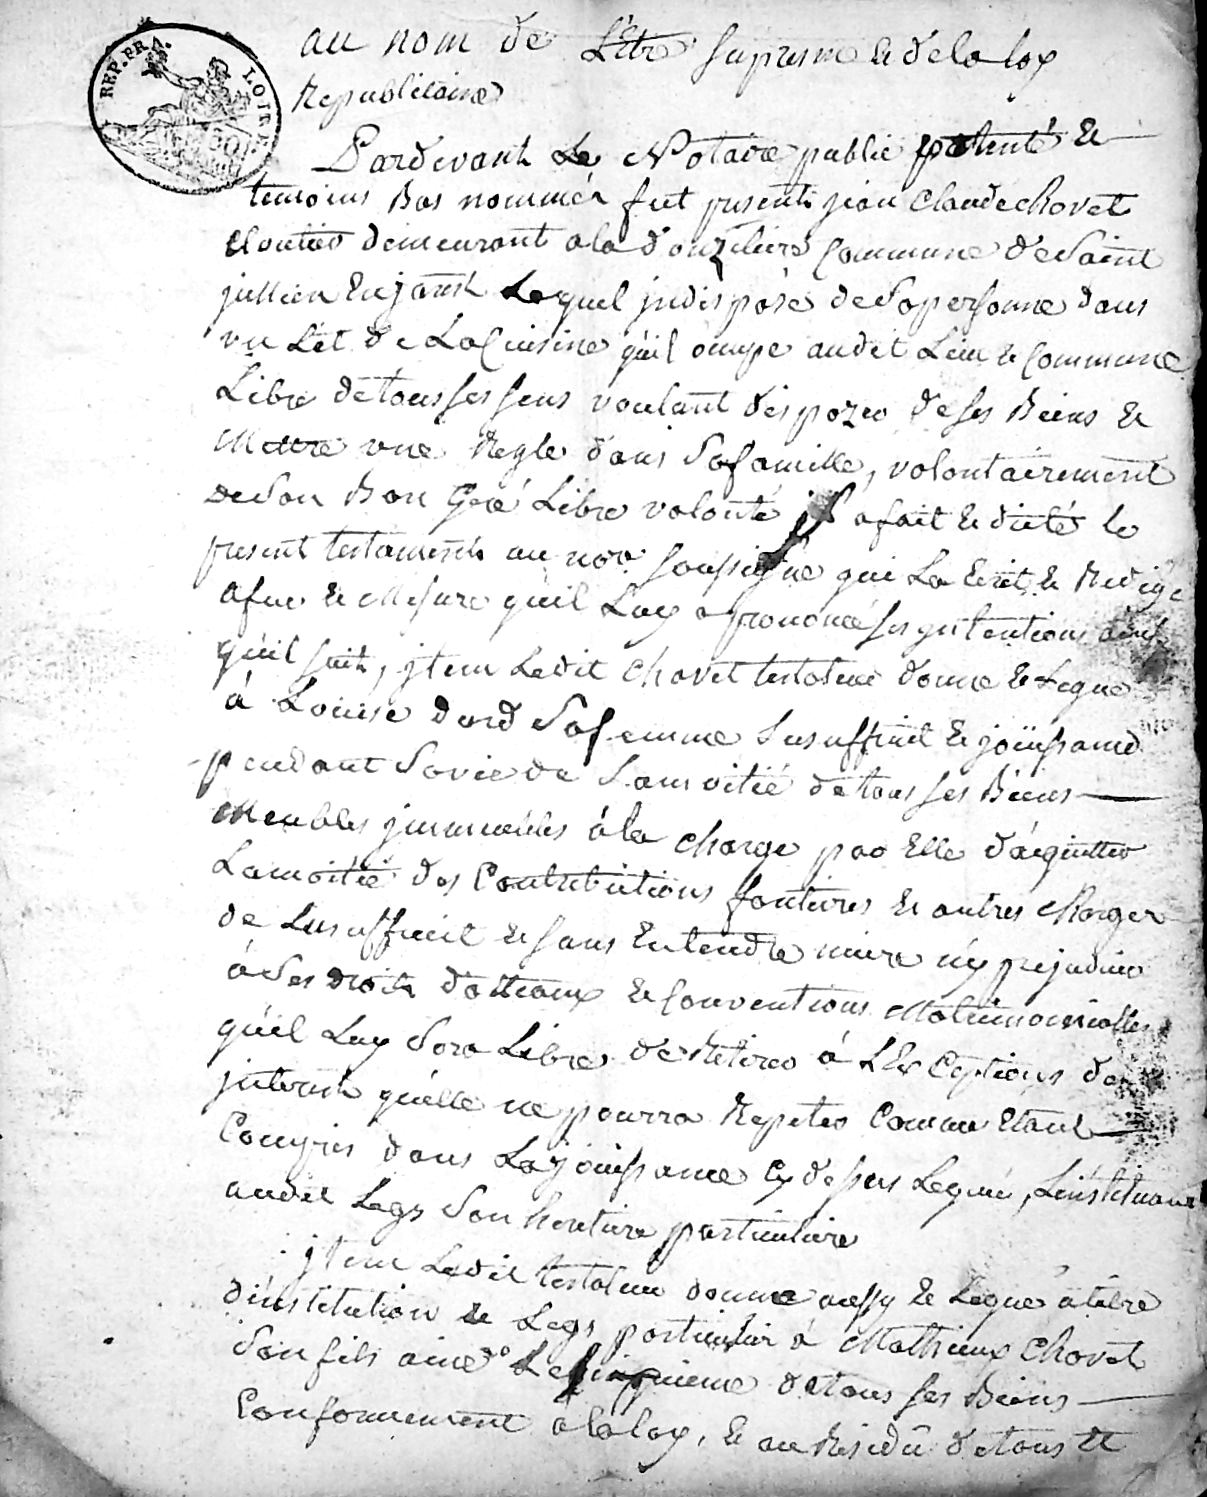 REP. FRA. LOIRE
au nom de L'Etre supresme & de la loy
Republicaine
Pardevant Le Notaire public patenté &
temoins Bas nommés fut present jean Claude chovet
cloutier demeurant a la d'ouzeliere Commune de Saint
jullien En jarest Lequel jndisposé de Sa personne dans
un Lit de La Cuisine qu'il ocupe audit Lieu & Commune
Libre de tous ses sens voulant dispozer de ses Biens &
Mettre une Regle dans Sa famille, volontairement
de Son Bon Gré Libre volonté jl a fait & dicté le
present testament au nore. soussigné qui La Ecrit & Redigé
afur & Mesure qu'il Luy a prononcé ses jntentions ainsy
qu'il suit, jtem Ledit chovet testateur donne & Legue
à Louise dard Sa femme Lusuffruit & joüissance
pendant Sa vie de Lamoitié de tous ses Biens
Meubles jmmeubles à la charge par Elle d'aquitter
Lamoitié des Contributions fontieres & autres charges
de Lusuffruit & sans Entendre nuire n'y prejudicier
à Ses droits dotteaux & Conventions Matrimonialles
qu'il Luy Sera Libre de Retirer à LEx Ceptions des
jnterest qu'elle ne pourra Repeter Comme Etant
Compris dans La joüissance Cy dessus Leguée, Linstituant
audit Legs Son heritiere particuliere
jtem Ledit testateur donne aussy & Legue a titre
d'institution & Legs particulier à Mathieux Chovet
Son fils ainé Le Cinquieme de tous ses Biens
Conformement a la loy, & au Residû de tous &